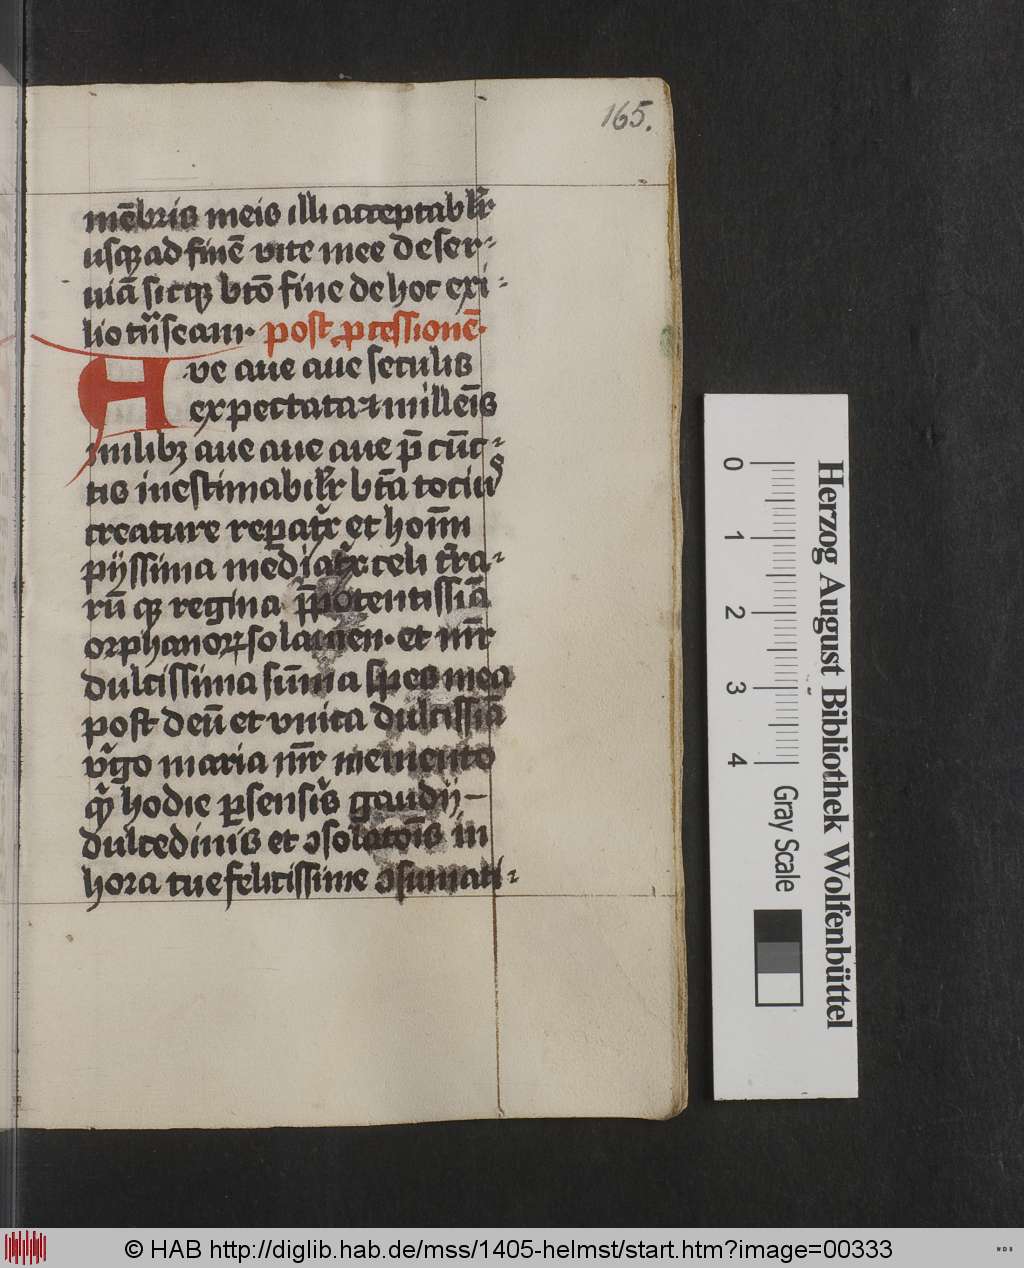 165.
mēbris meis illi acceptabłr
usq̨ ad finē vite mee deser-
uiā sicq̨ btō fine de hoc exi-
lio tn̄seam. post ꝓcessionē.
Aue aue aue seculis
expectata ⁊ milleīs
milibꝫ aue aue aue p̄ cūc-
tis inestimabiłr btā tociꝰ
creature repatͥx et hoīm
pijssima mediatͥx celi tr̄ra-
rū q̨ regina p̄potentissīa
orphanoꝝ solamen. et mr̄
dulcissima sūma spes mea
post deū et vnica dulcissīa
vͥgo maria mr̄ memento
hodie gaudij
dulcedinis et ꝯsolatōīs in
hora tue felicissime ꝯsumati-
0 1 2 3 4
Gray Scale
Herzog August Bibliothek Wolfenbüttel
© HAB http://diglib.hab.de/mss/1405-helmst/start.htm?image=00333